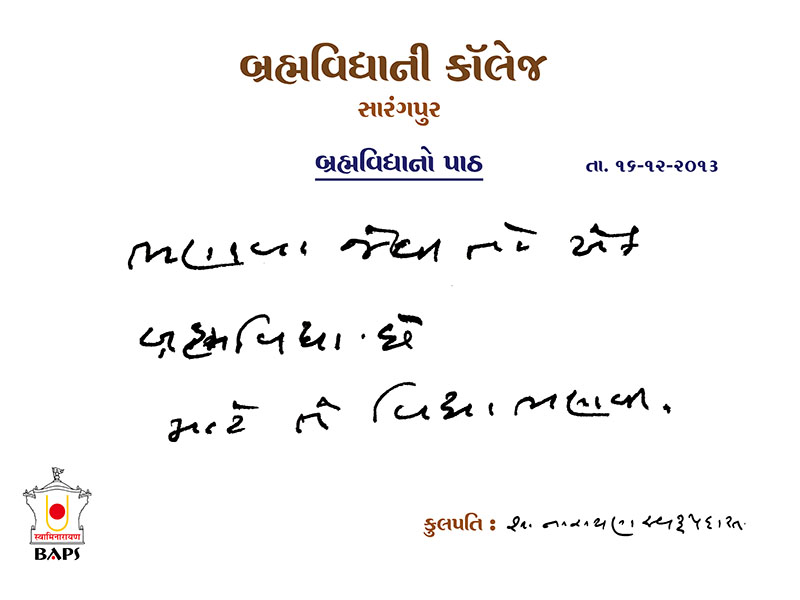 બ્રહ્મવિદ્યાની કૉલેજ
સારંગપુર
બ્રહ્મવિદ્યાનો પાઠ
તા. ૧૬-૧૨-૨૦૧૩
ભણવા જેવી તો એક
બ્રહ્મવિદ્યા છે
માટે તે વિદ્યા ભણવી.
કુલપતિ : શા. નારાયણસ્વરૂપદાસ
स्वामिनारायण
BAPS